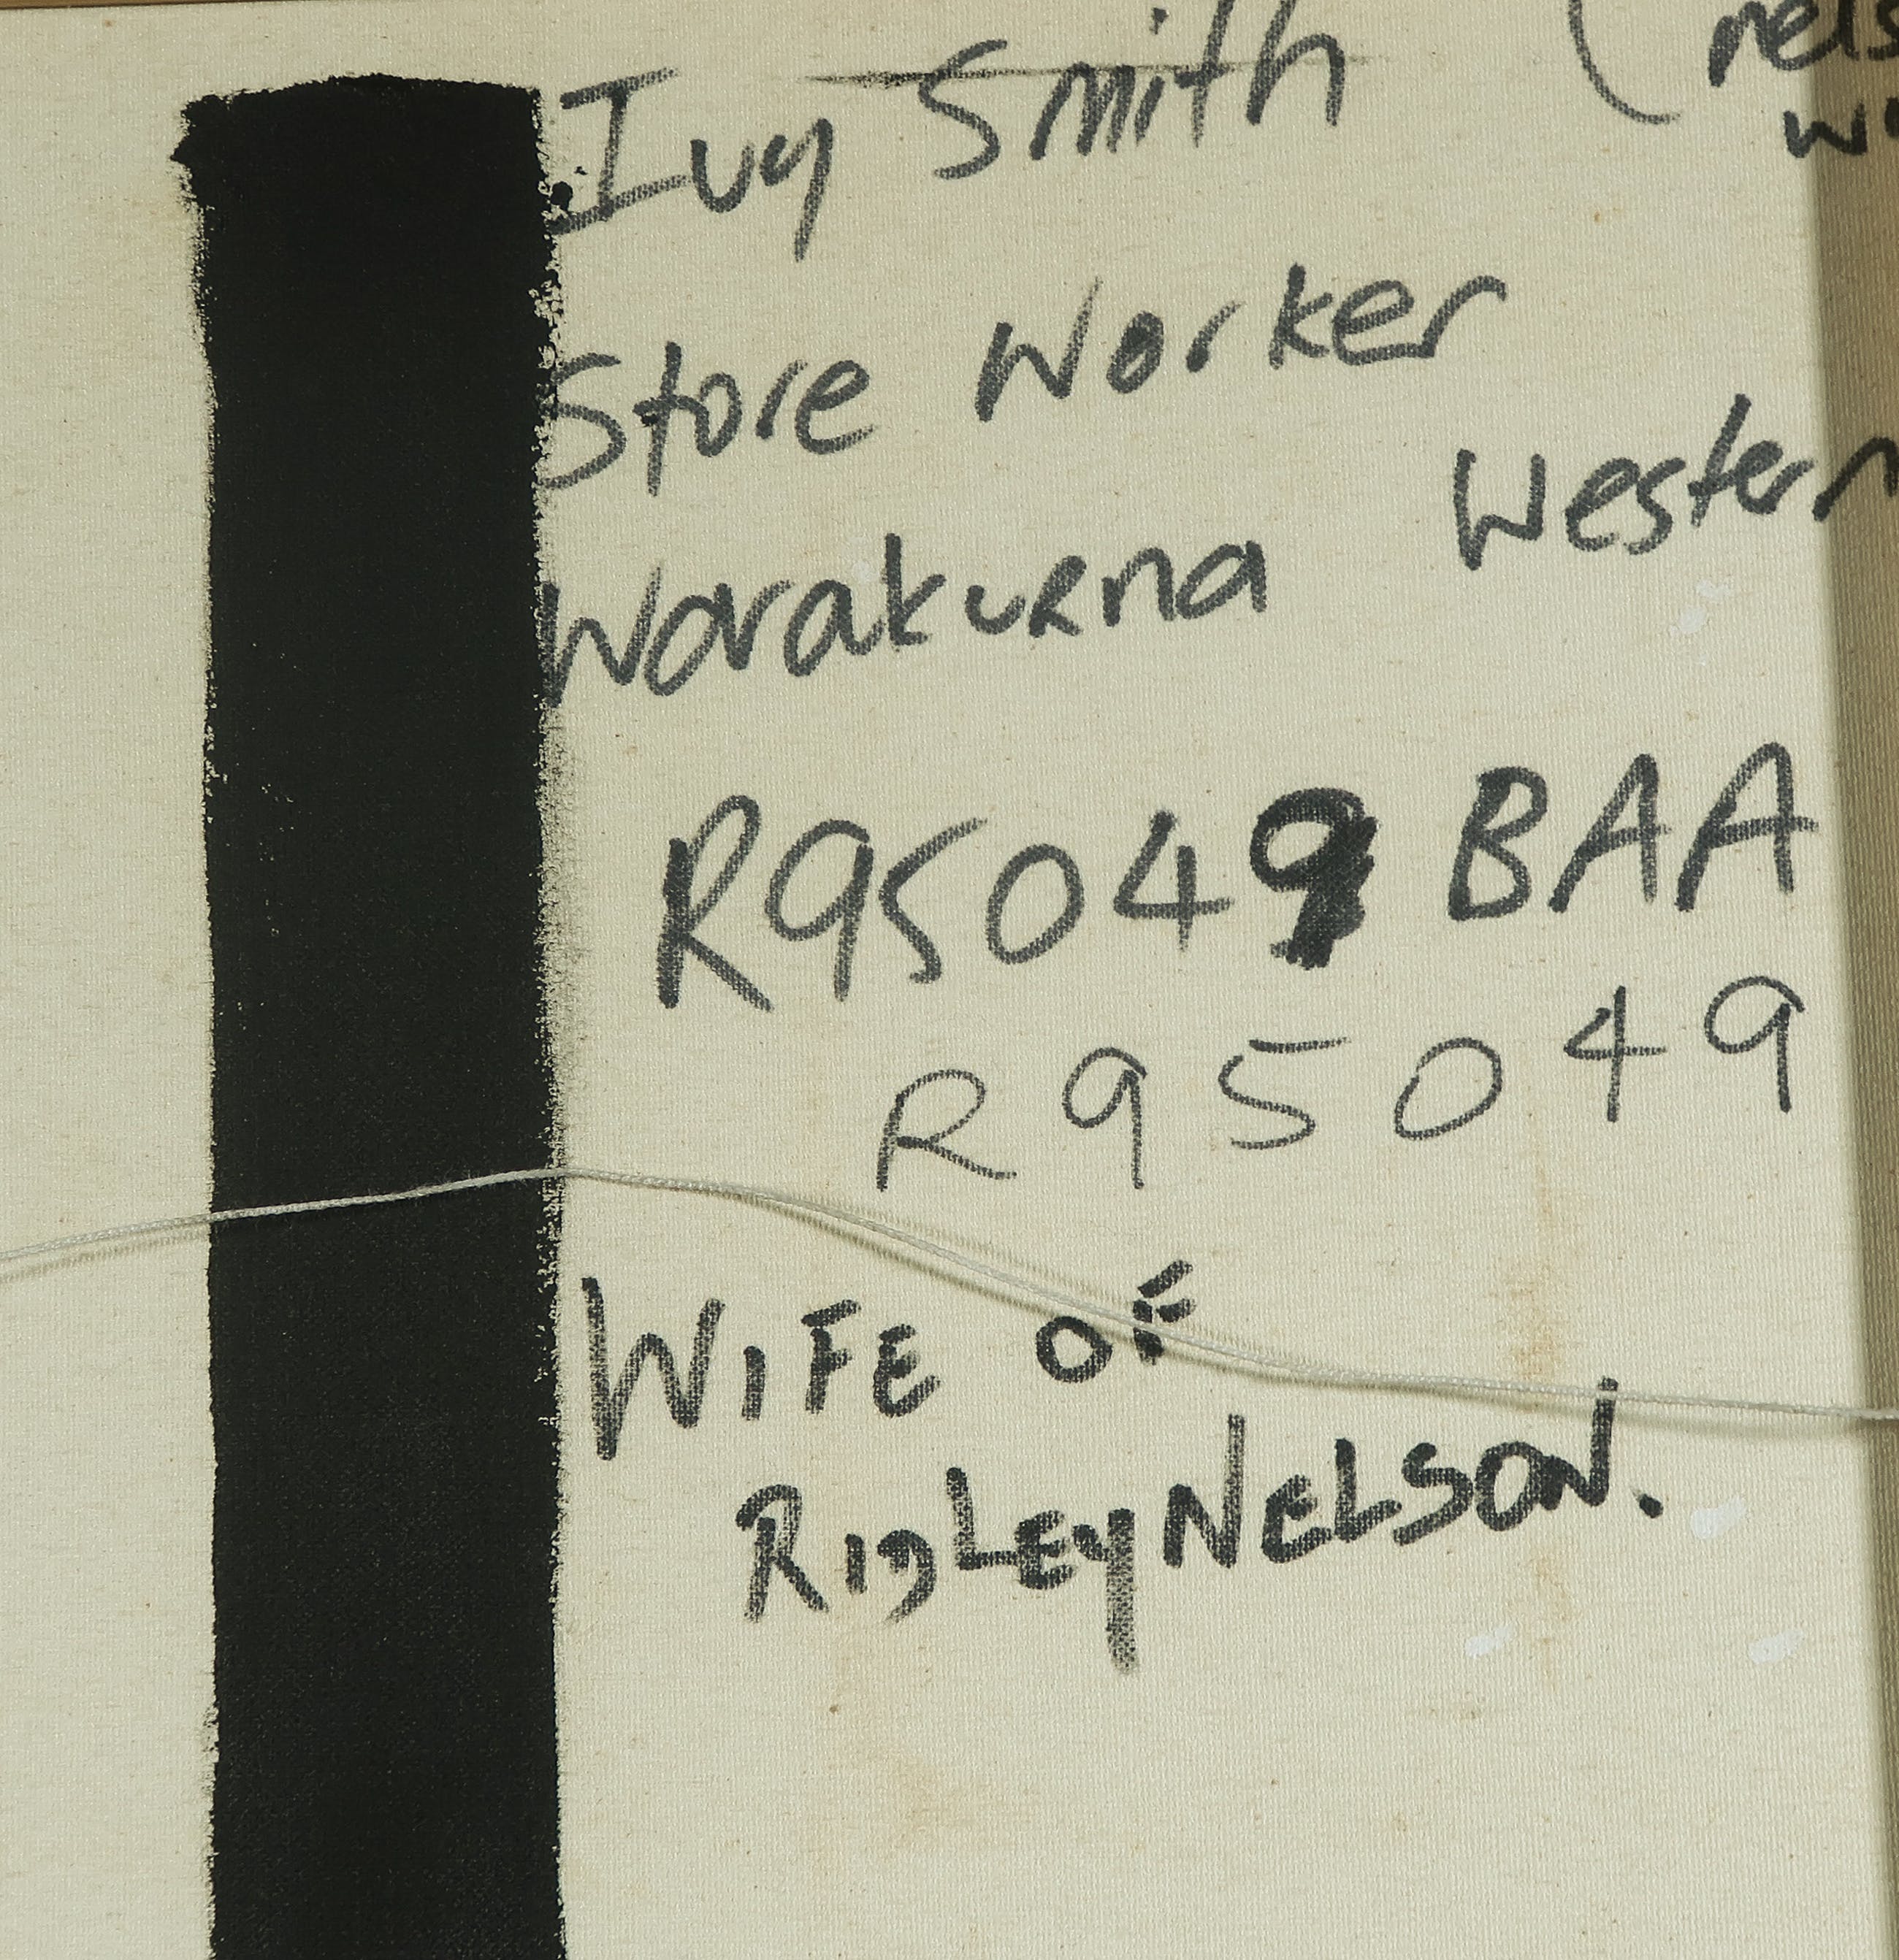 Ivy Smith (nels
Store Worker
Warakurna Western
R95049 BAA
R95049
WIFE OF
RIDLEY NELSON.